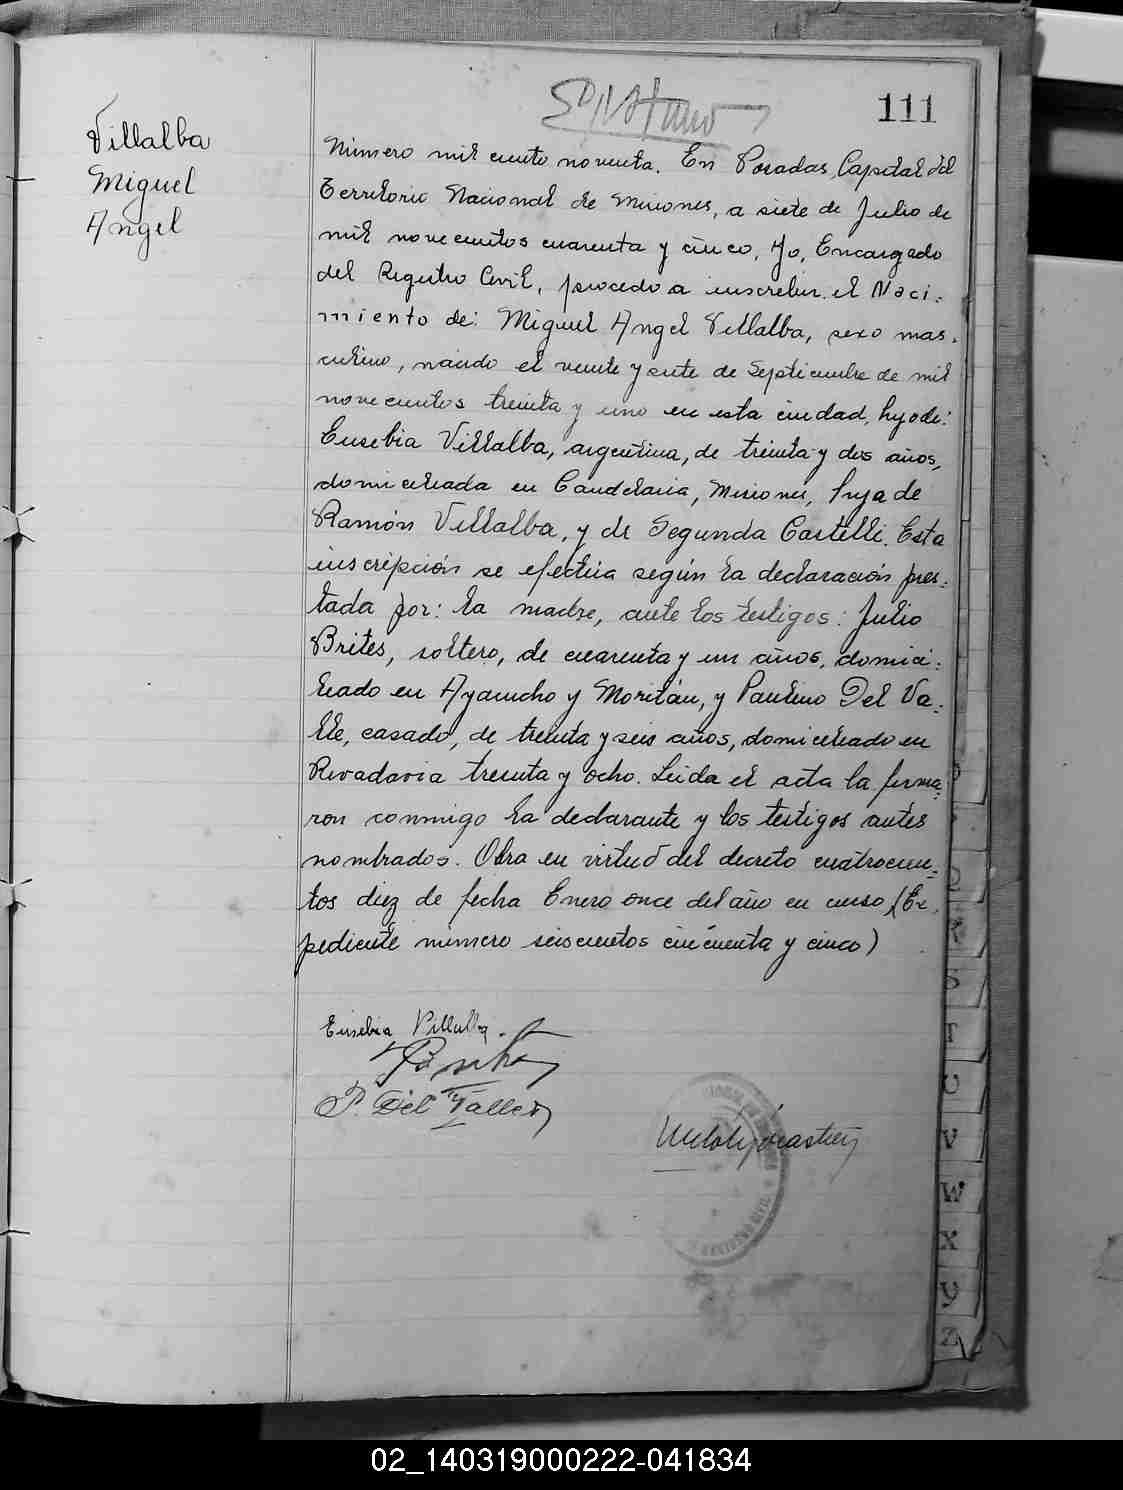 111
Villalba
Miguel
Angel
Número mil ciento noventa. En Posadas, Capital del
Territorio Nacional de Misiones, a siete de Julio de
mil novecientos cuarenta y cinco, Yo, Encargado
del Registro Civil, procedo a inscribir el Naci-
miento de: Miguel Angel Villalba, sexo mas-
culino, nacido el veinte y siete de Septiembre de mil
novecientos treinta y uno en esta ciudad, hijo de:
Eusebia Villalba, argentina, de treinta y dos años,
domiciliada en Candelaria, Misiones, hija de
Ramón Villalba, y de Segunda Castelli. Esta
inscripción se efectúa según la declaración pres-
tada por: la madre, ante los testigos: Julio
Brites, soltero, de cuarenta y un años, domici-
liado en Ayacucho y Moritán, y Paulino Del Va-
lle, casado, de treinta y seis años, domiciliado en
Rivadavia treinta y ocho. Leida el acta la firma-
ron conmigo la declarante y los testigos antes
nombrados. Obra en virtud del decreto cuatrocien-
tos diez de fecha Enero once del año en curso (Ex-
pediente número seiscientos cincuenta y cinco)
Eusebia Villalba
P. Del Valle
REGISTRO CIVIL
R
S
T
U
V
W
X
Y
Z
02_140319000222-041834